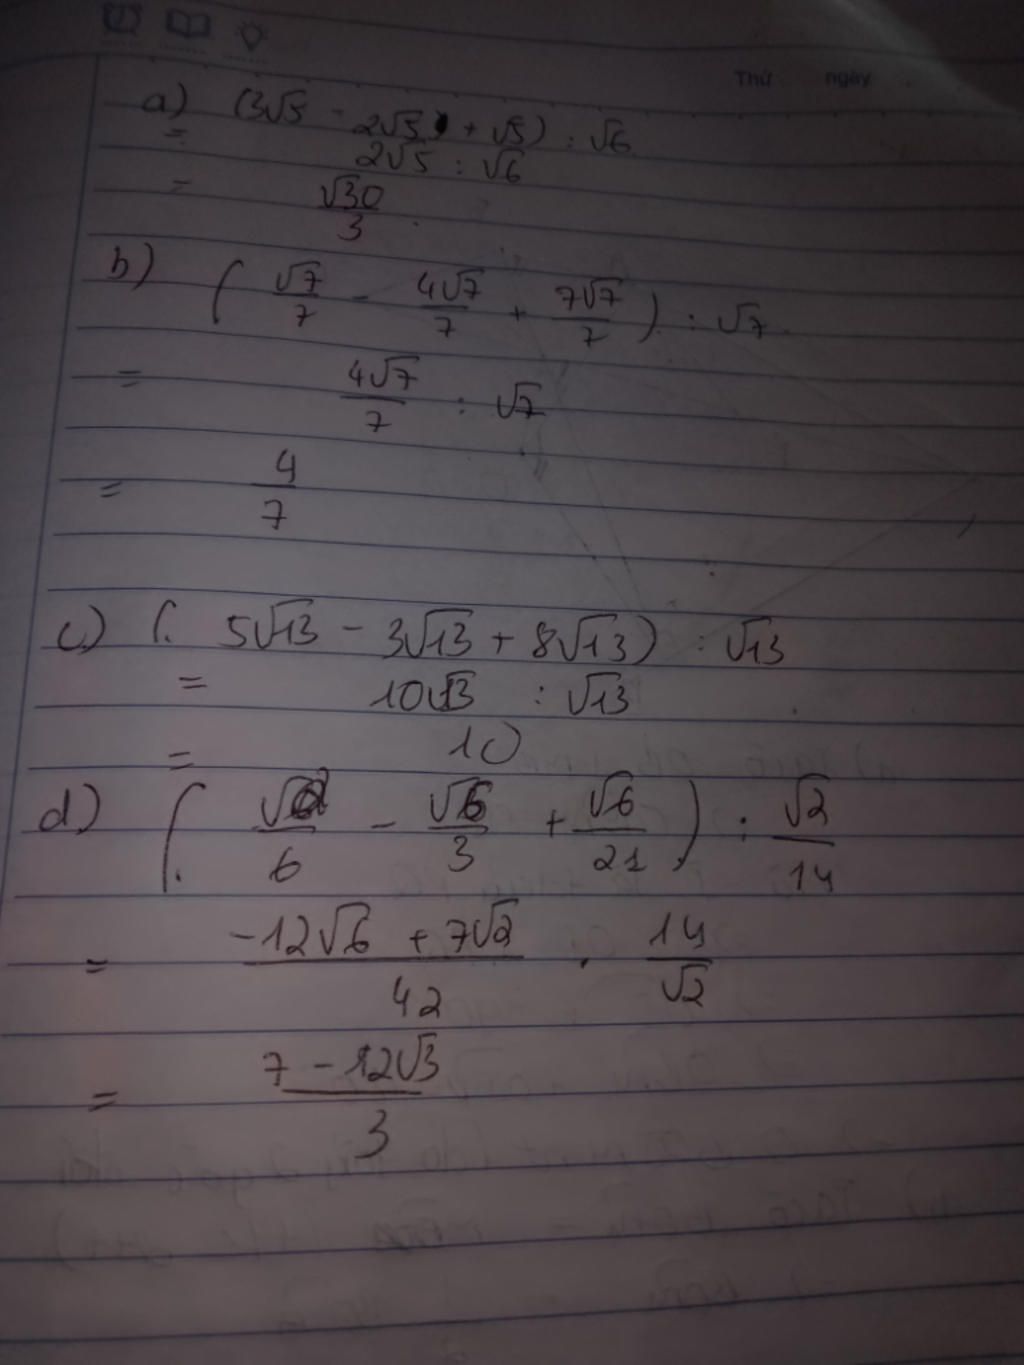 Thứ ngày
a) (3√5 - 2√5 + √5) : √6
= 2√5 : √6
= √30/3
b) (√7/7 - 4√7/7 + 7√7/7) : √7
= 4√7/7 : √7
= 4/7
c) (5√13 - 3√13 + 8√13) : √13
= 10√13 : √13
= 10
d) (√2/6 - √6/3 + √6/21) : √2/14
= -12√6 + 7√2/42 . 14/√2
= 7 - 12√3/3